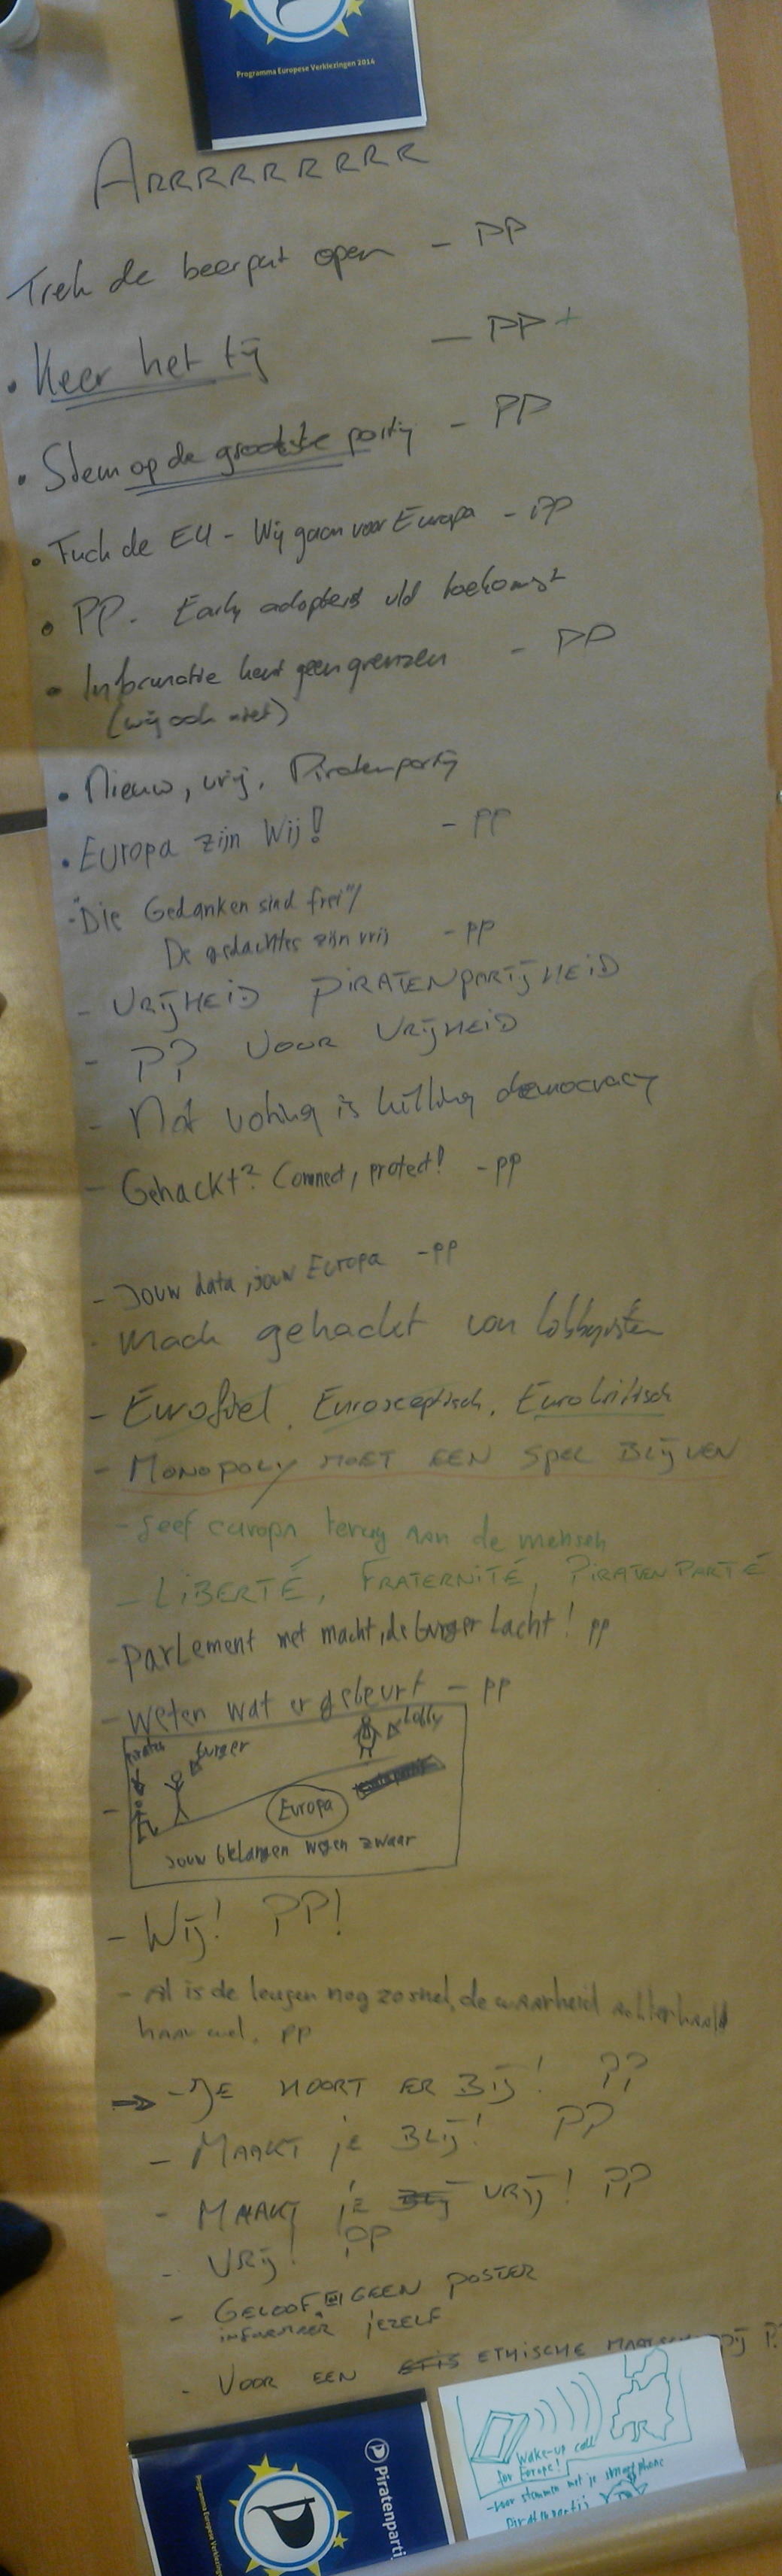 Programma Europese Verkiezingen 2014
ARRRRRRRRR
Trek de beerput open - PP
• Keer het tij - PP +
• Stem op de grootste partij - PP
• Fuck de EU - Wij gaan voor Europa - PP
• PP. Early adopters v/d toekomst
• Informatie kent geen grenzen - PP
(wij ook niet)
• Nieuw, vrij, Piratenpartij
• Europa zijn Wij! - PP
- "Die Gedanken sind frei"/
De gedachtes zijn vrij - PP
- VRIJHEID PIRATENPARTIJHEID
- PP VOOR VRIJHEID
- Not voting is killing democracy
- Gehackt? Connect, protect! - PP
- Jouw data, jouw Europa - PP
- gehackt van lobbyisten
- Eurofiel, Eurosceptisch, Eurokritisch
- MONOPOLY MOET EEN SPEL BLIJVEN
- geef europa terug aan de mensen
- LIBERTÉ, FRATERNITÉ, PIRATENPARTÉ
- Parlement met macht, de burger lacht! PP
- Weten wat er gebeurt - PP
Piraten
burger
Lobby
Europa
Jouw belangen wegen zwaar
- Wij! PP!
- Al is de leugen nog zo snel, de waarheid achterhaald
haar wel. PP
→ - JE HOORT ER BIJ! PP
- MAAKT je BLIJ! PP
- MAAKT je BLIJ VRIJ! PP
- VRIJ! PP
- GELOOF GEEN POSTER
informeer jezelf
- VOOR EEN ETHISCHE
Piratenpartij
Programma Europese Verkiezingen
Wake-up call
for Europe!
- voor stemmen met je smartphone
Piratenpartij